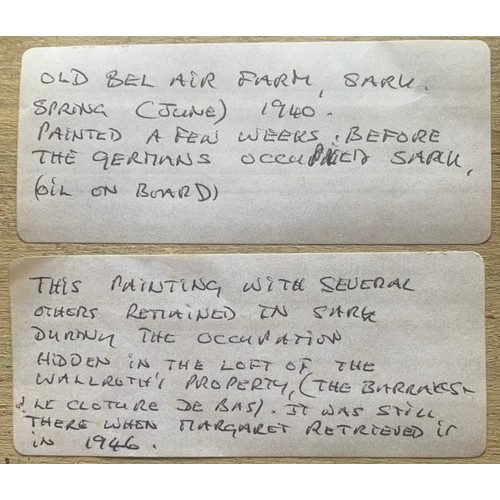 OLD BEL AIR FARM, SARK.
SPRING (JUNE) 1940.
PAINTED A FEW WEEKS BEFORE
THE GERMANS OCCUPIED SARK.
(OIL ON BOARD)
THIS PAINTING WITH SEVERAL
OTHERS REMAINED IN SARK
DURING THE OCCUPATION
HIDDEN IN THE LOFT OF THE
WALLROTH'S PROPERTY, (THE BARRAKS
& LE CLOTURE DE BAS). IT WAS STILL
THERE WHEN MARGARET RETRIEVED IT
IN 1946.